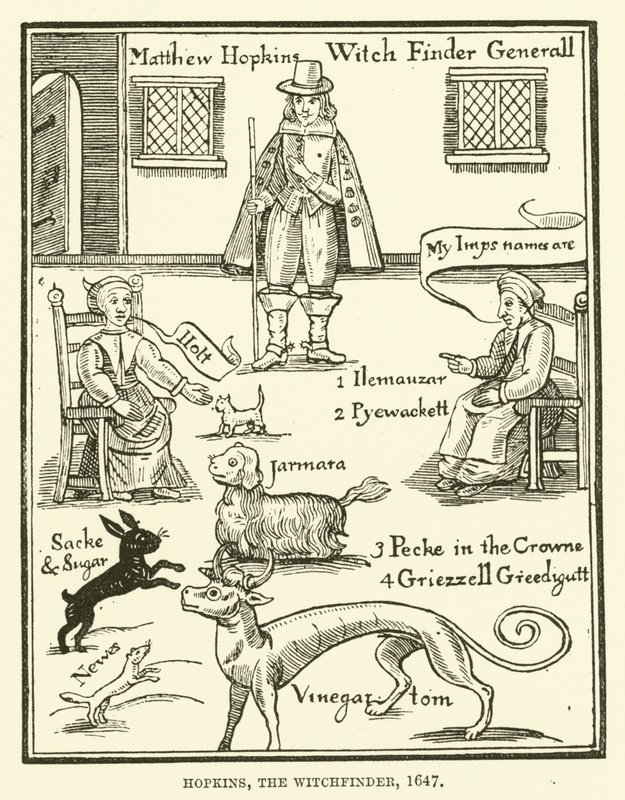 Matthew Hopkins Witch Finder Generall
My Imps names are
Holt
1 Ilemauzar
2 Pyewackett
Jarmara
Sacke
& Sugar
3 Pecke in the Crowne
4 Griezzell Greedigutt
Newes
Vinegar tom
HOPKINS, THE WITCHFINDER, 1647.